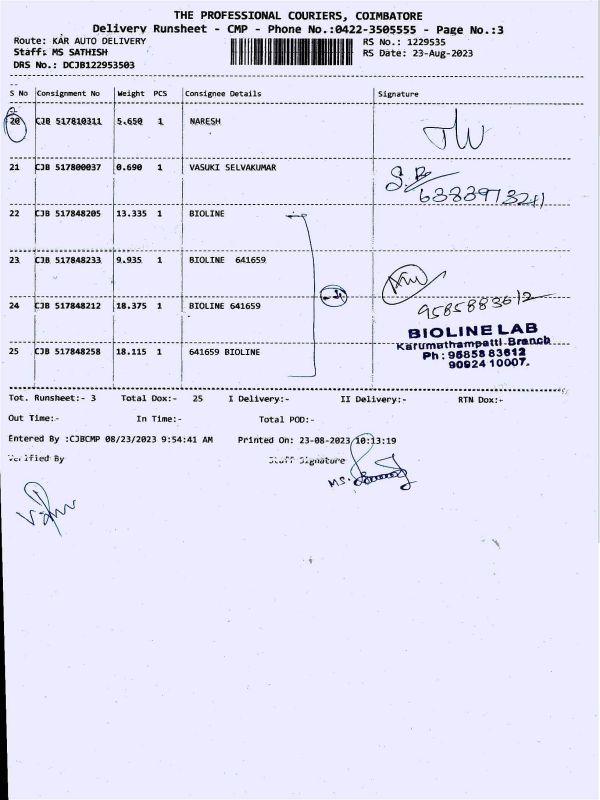 THE PROFESSIONAL COURIERS, COIMBATORE
Delivery Runsheet - CMP - Phone No.:0422-3505555 - Page No.:3
Route: KAR AUTO DELIVERY RS No.: 1229535
Staff: MS SATHISH RS Date: 23-Aug-2023
DRS No.: DCJB122953503
S No Consignment No Weight PCS Consignee Details Signature
20 CJB 517810311 5.650 1 NARESH
21 CJB 517800037 0.690 1 VASUKI SELVAKUMAR
6383973241
22 CJB 517848205 13.335 1 BIOLINE
23 CJB 517848233 9.935 1 BIOLINE 641659
24 CJB 517848212 18.375 1 BIOLINE 641659
9585883612
BIOLINE LAB
Karumathampatti Branch
25 CJB 517848258 18.115 1 641659 BIOLINE
Ph : 95858 83612
90924 10007.
Tot. Runsheet:- 3 Total Dox:- 25 I Delivery:- II Delivery:- RTN Dox:-
Out Time:- In Time:- Total POD:-
Entered By :CJBCMP 08/23/2023 9:54:41 AM Printed On: 23-08-2023 10:13:19
Verified By Staff Signature